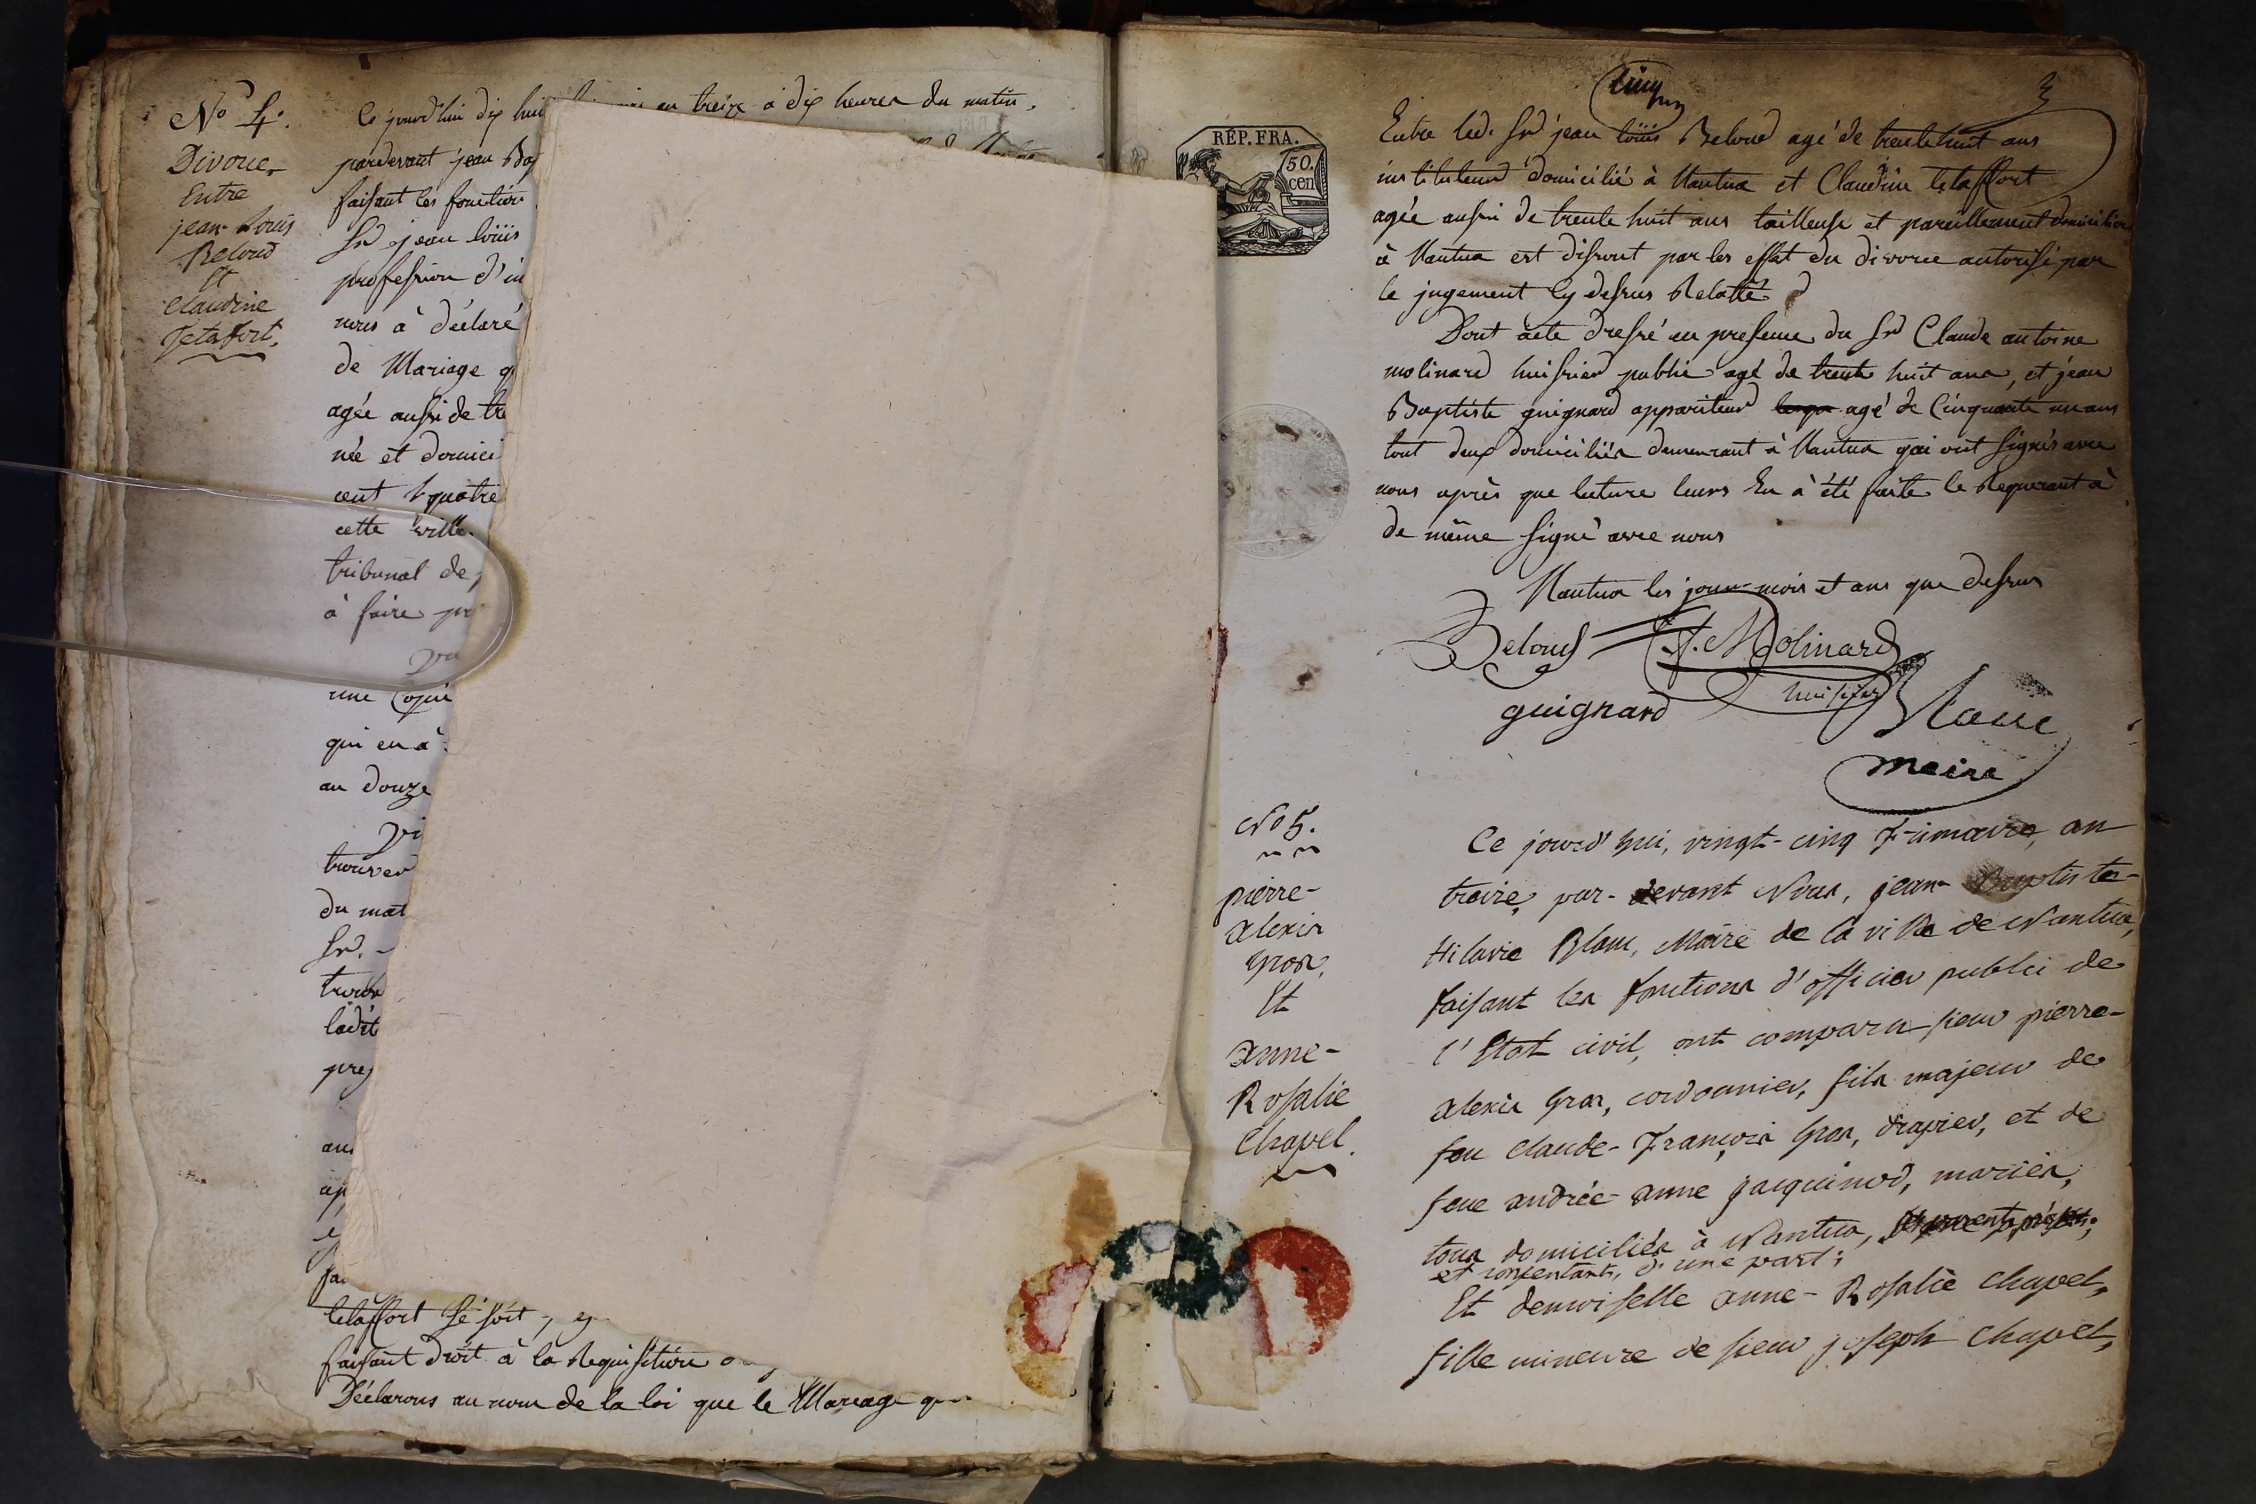 No 4.
Divorce
Entre
jean Louis
Beloud
Et
Claudine
Tetafort.
Ce jourd'hui dix hui an treize a dix heures du matin.
pardevant jean Bap
faisant les fonction
Sr jean loüis
profession d'in
nous à déclaré
de Mariage q
agée aussi de tre
née et domici
cent quatre
cette ville
tribunal de
à faire pr
une Copie
qui en a
au douze
trouver
du mat
Sr.
trouv
ladit
pre
au
fai
tetaffort se soit, e
faisant droit à la Requisition
Déclarons au nom de la loi que le Mariage qu
3
RÉP. FRA.
50.
cen
Entre led. Sr jean loüis Beloud agé de trente huit ans
instituteur domicilié à Nantua et Claudine tetaffort
agée aussi de trente huit ans tailleuse et pareillement domiciliée
à Nantua est dissout par les effet du divorce autorisé par
le jugement Cy dessus Relatté
Dont acte dressé en presence du Sr Claude antoine
molinard huissier public agé de trente huit ans, et jean
Baptiste guignard appariteur agé de Cinquante un ans
tout deux domiciliés demeurant à Nantua qui ont signés avec
nous après que lecture leurs En à été faite le Requerant à
de même signé avec nous
Nantua les jour mois et ans que dessus
Beloud C. A. Molinard
huissier
guignard
Blanc
maire
No 5.
pierre-
alexis
Gros,
Et
anne-
Rosalie
Chapel.
Ce jourd'hui, vingt-cinq Frimaire, an
treize, par-devant Nous, jean-Baptiste-
Hilaire Blanc, Maire de la ville de Nantua,
faisant les fonctions d'officier public de
l'Etat civil, ont comparu sieur pierre-
alexis Gros, cordonnier, fils majeur de
feu claude-François Gros, drapier, et de
feue andrée-anne jacquinod, mariés,
tous domiciliés à Nantua,
et consentants, d'une part;
Et demoiselle anne-Rosalie Chapel,
fille mineure de sieur joseph Chapel,